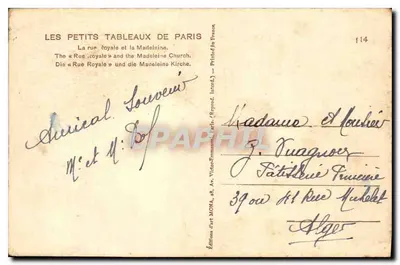 LES PETITS TABLEAUX DE PARIS
La rue Royale et la Madeleine.
The « Rue Royale » and the Madeleine Church.
Die « Rue Royale » und die Madeleine Kirche.
114
Amical Souvenir
Mr et Mme
Madame et Monsieur
G.
Pâtisserie Princière
39 ou 41 Rue Michelet
Alger
Editions d'art MONA, 28, Av.
Printed in France